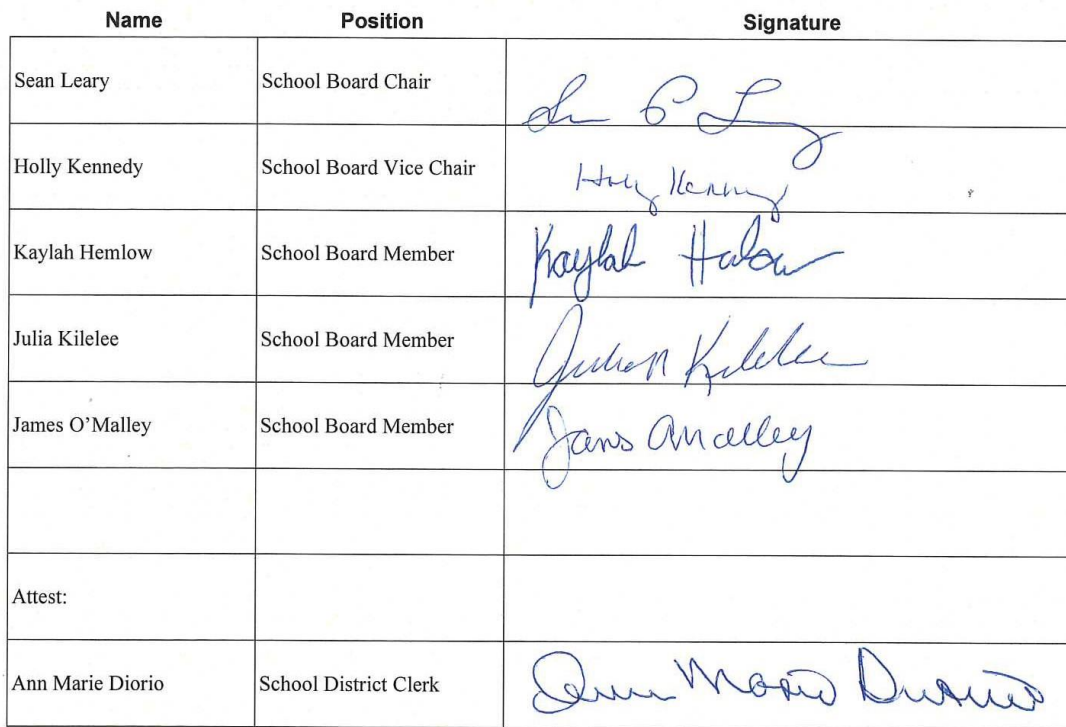 Name Position Signature
Sean Leary School Board Chair
Holly Kennedy School Board Vice Chair Holly Kennedy
Kaylah Hemlow School Board Member Kaylah
Julia Kilelee School Board Member Kilelee
James O’Malley School Board Member James OMalley
Attest:
Ann Marie Diorio School District Clerk Ann Marie Diorio